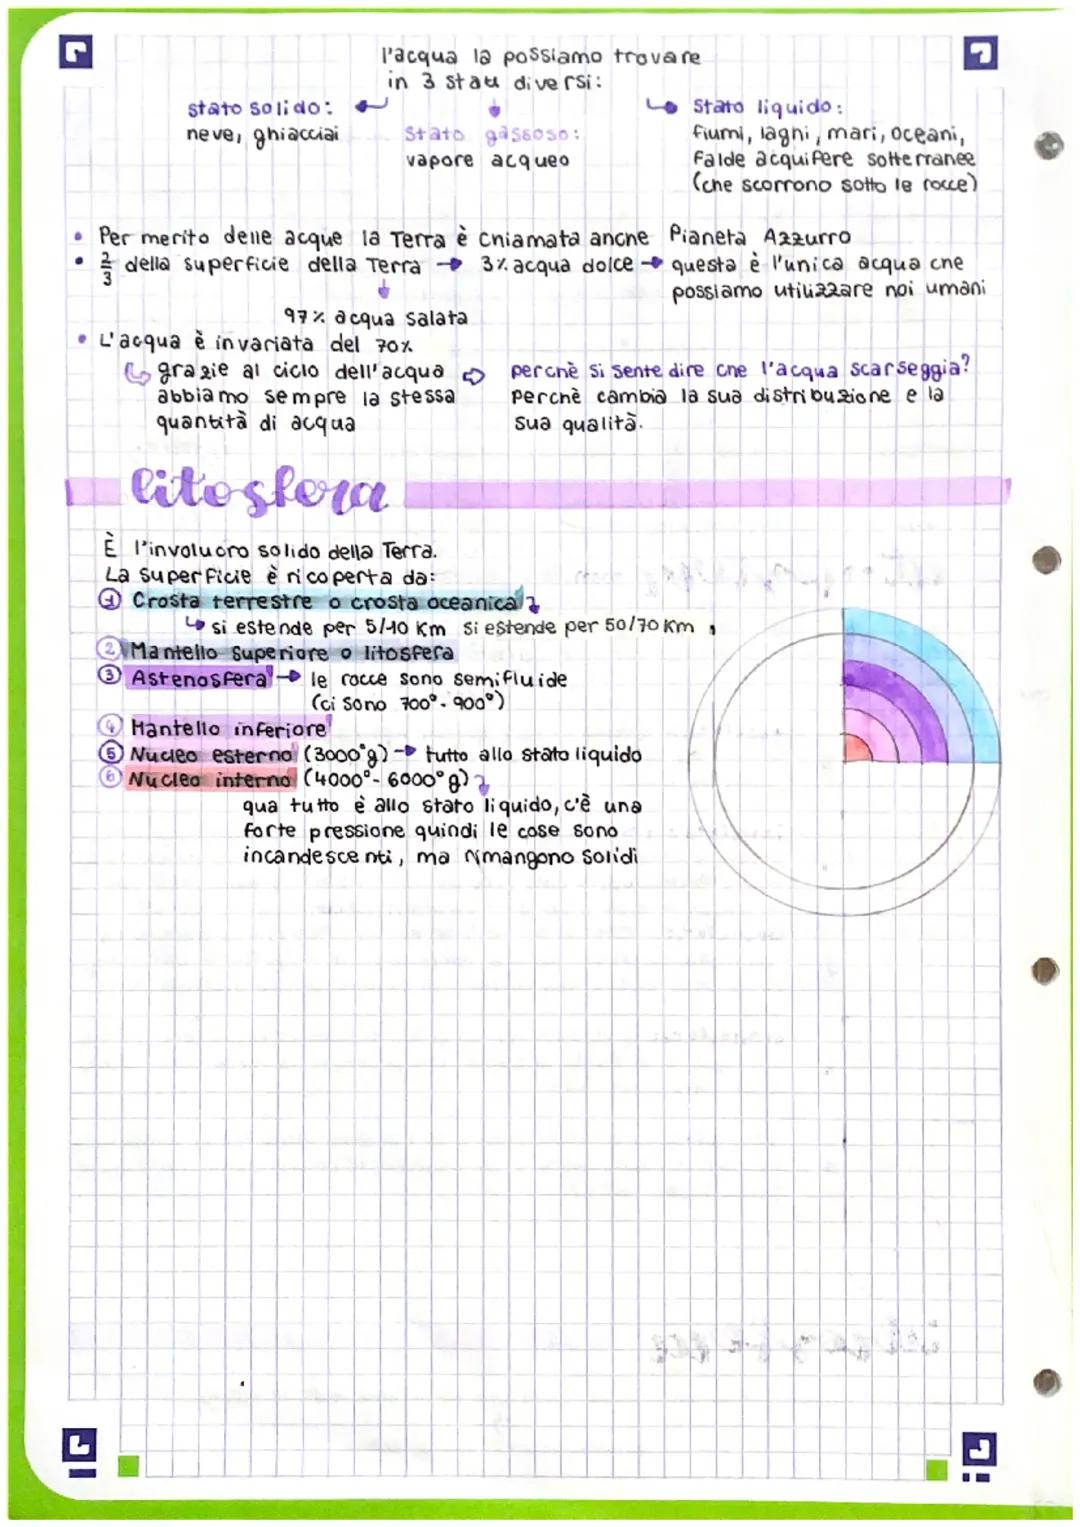 l'acqua la possiamo trovare
in 3 stati diversi:
stato solido:
neve, ghiacciai
Stato gassoso:
vapore acqueo
Stato liquido:
fiumi, laghi, mari, oceani,
Falde acquifere sotterranee
(che scorrono sotto le rocce)
• Per merito delle acque la Terra è chiamata anche Pianeta Azzurro
• 2/3 della superficie della Terra → 3% acqua dolce → questa è l'unica acqua che
possiamo utilizzare noi umani
97% acqua salata
• L'acqua è invariata del 70%
grazie al ciclo dell'acqua ⇨ perchè si sente dire che l'acqua scarseggia?
abbiamo sempre la stessa Perchè cambia la sua distribuzione e la
quantità di acqua sua qualità.
litosfera
È l'involucro solido della Terra.
La superficie è ricoperta da:
① Crosta terrestre o crosta oceanica
↳ si estende per 5/10 Km si estende per 50/70 Km
② Mantello superiore o litosfera
③ Astenosfera → le rocce sono semifluide
(ci sono 700°-900°)
④ Mantello inferiore
⑤ Nucleo esterno (3000°g) → tutto allo stato liquido
⑥ Nucleo interno (4000°-6000°g)
qua tutto è allo stato liquido, c'è una
forte pressione quindi le cose sono
incandescenti, ma rimangono solidi